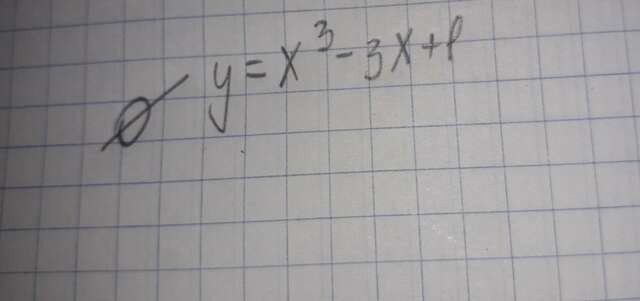 y = x³ - 3x + 1